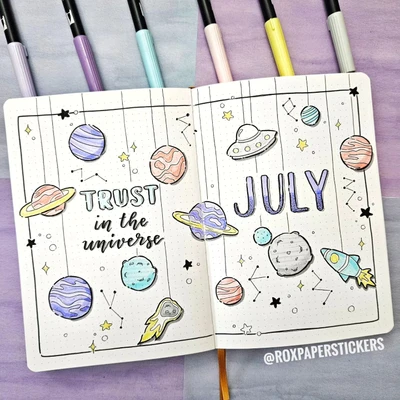 TRUST
in the
universe
JULY
@ROXPAPERSTICKERS